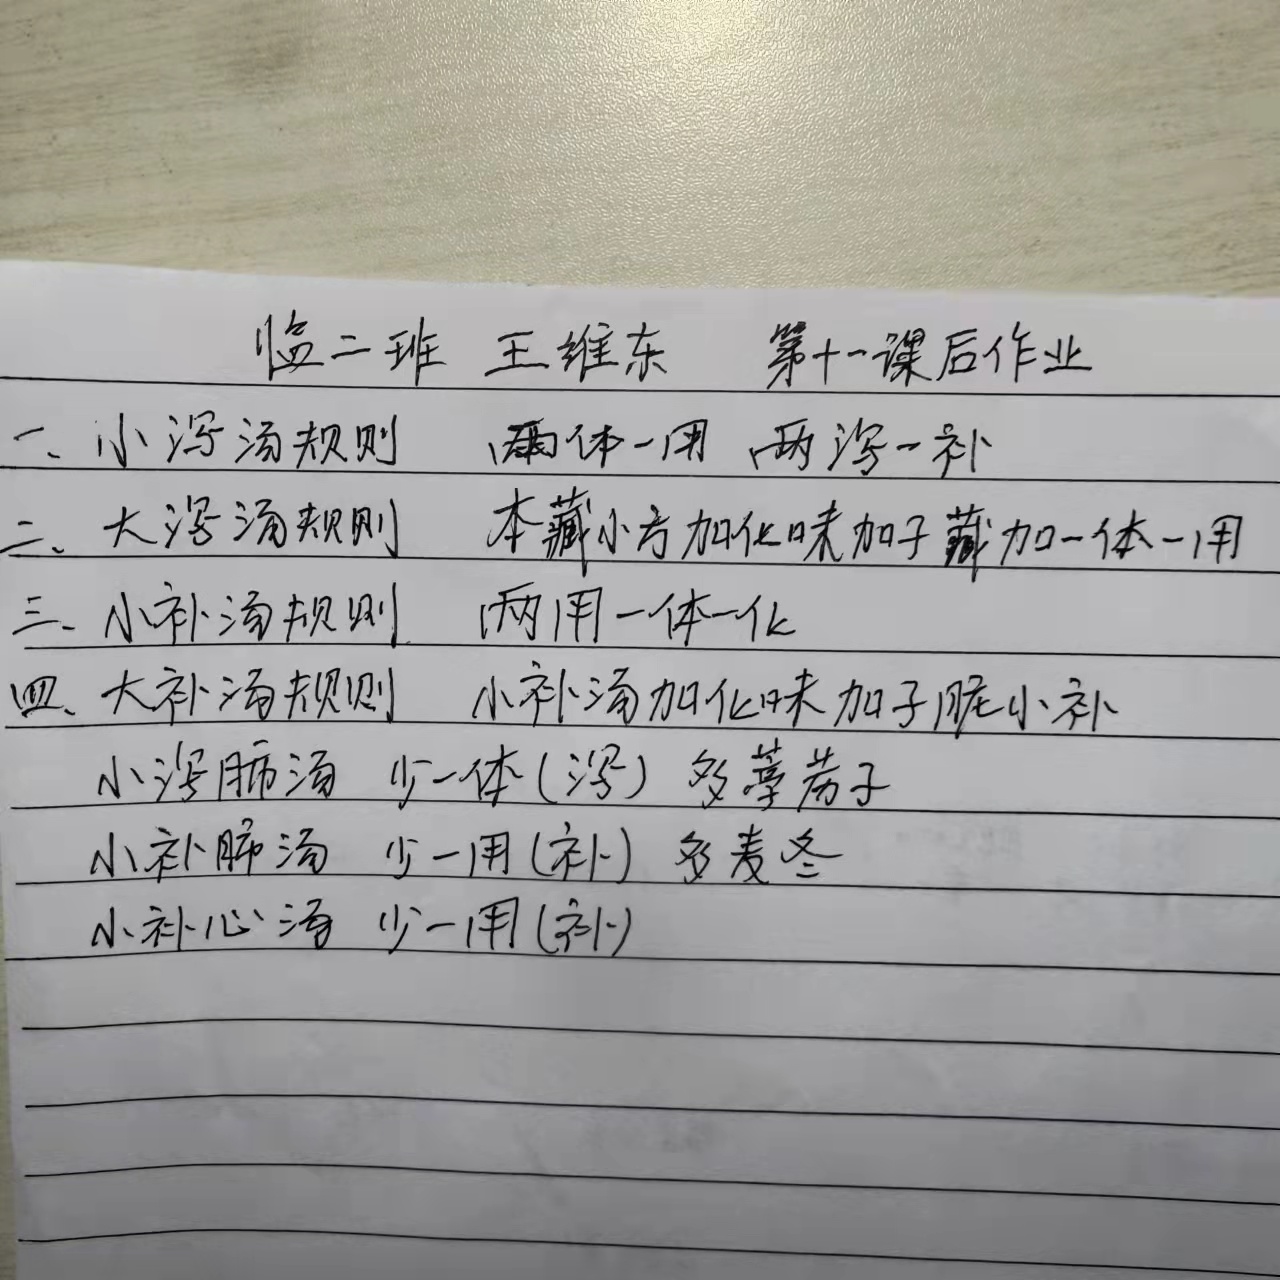 临二班 王维东 第十一课后作业
一、小泻汤规则 两体一用 两泻一补
二、大泻汤规则 本藏小方加化味加子藏加一体一用
三、小补汤规则 两用一体一化
四、大补汤规则 小补汤加化味加子脏小补
小泻肺汤 少一体(泻) 多葶苈子
小补肺汤 少一用(补) 多麦冬
小补心汤 少一用(补)